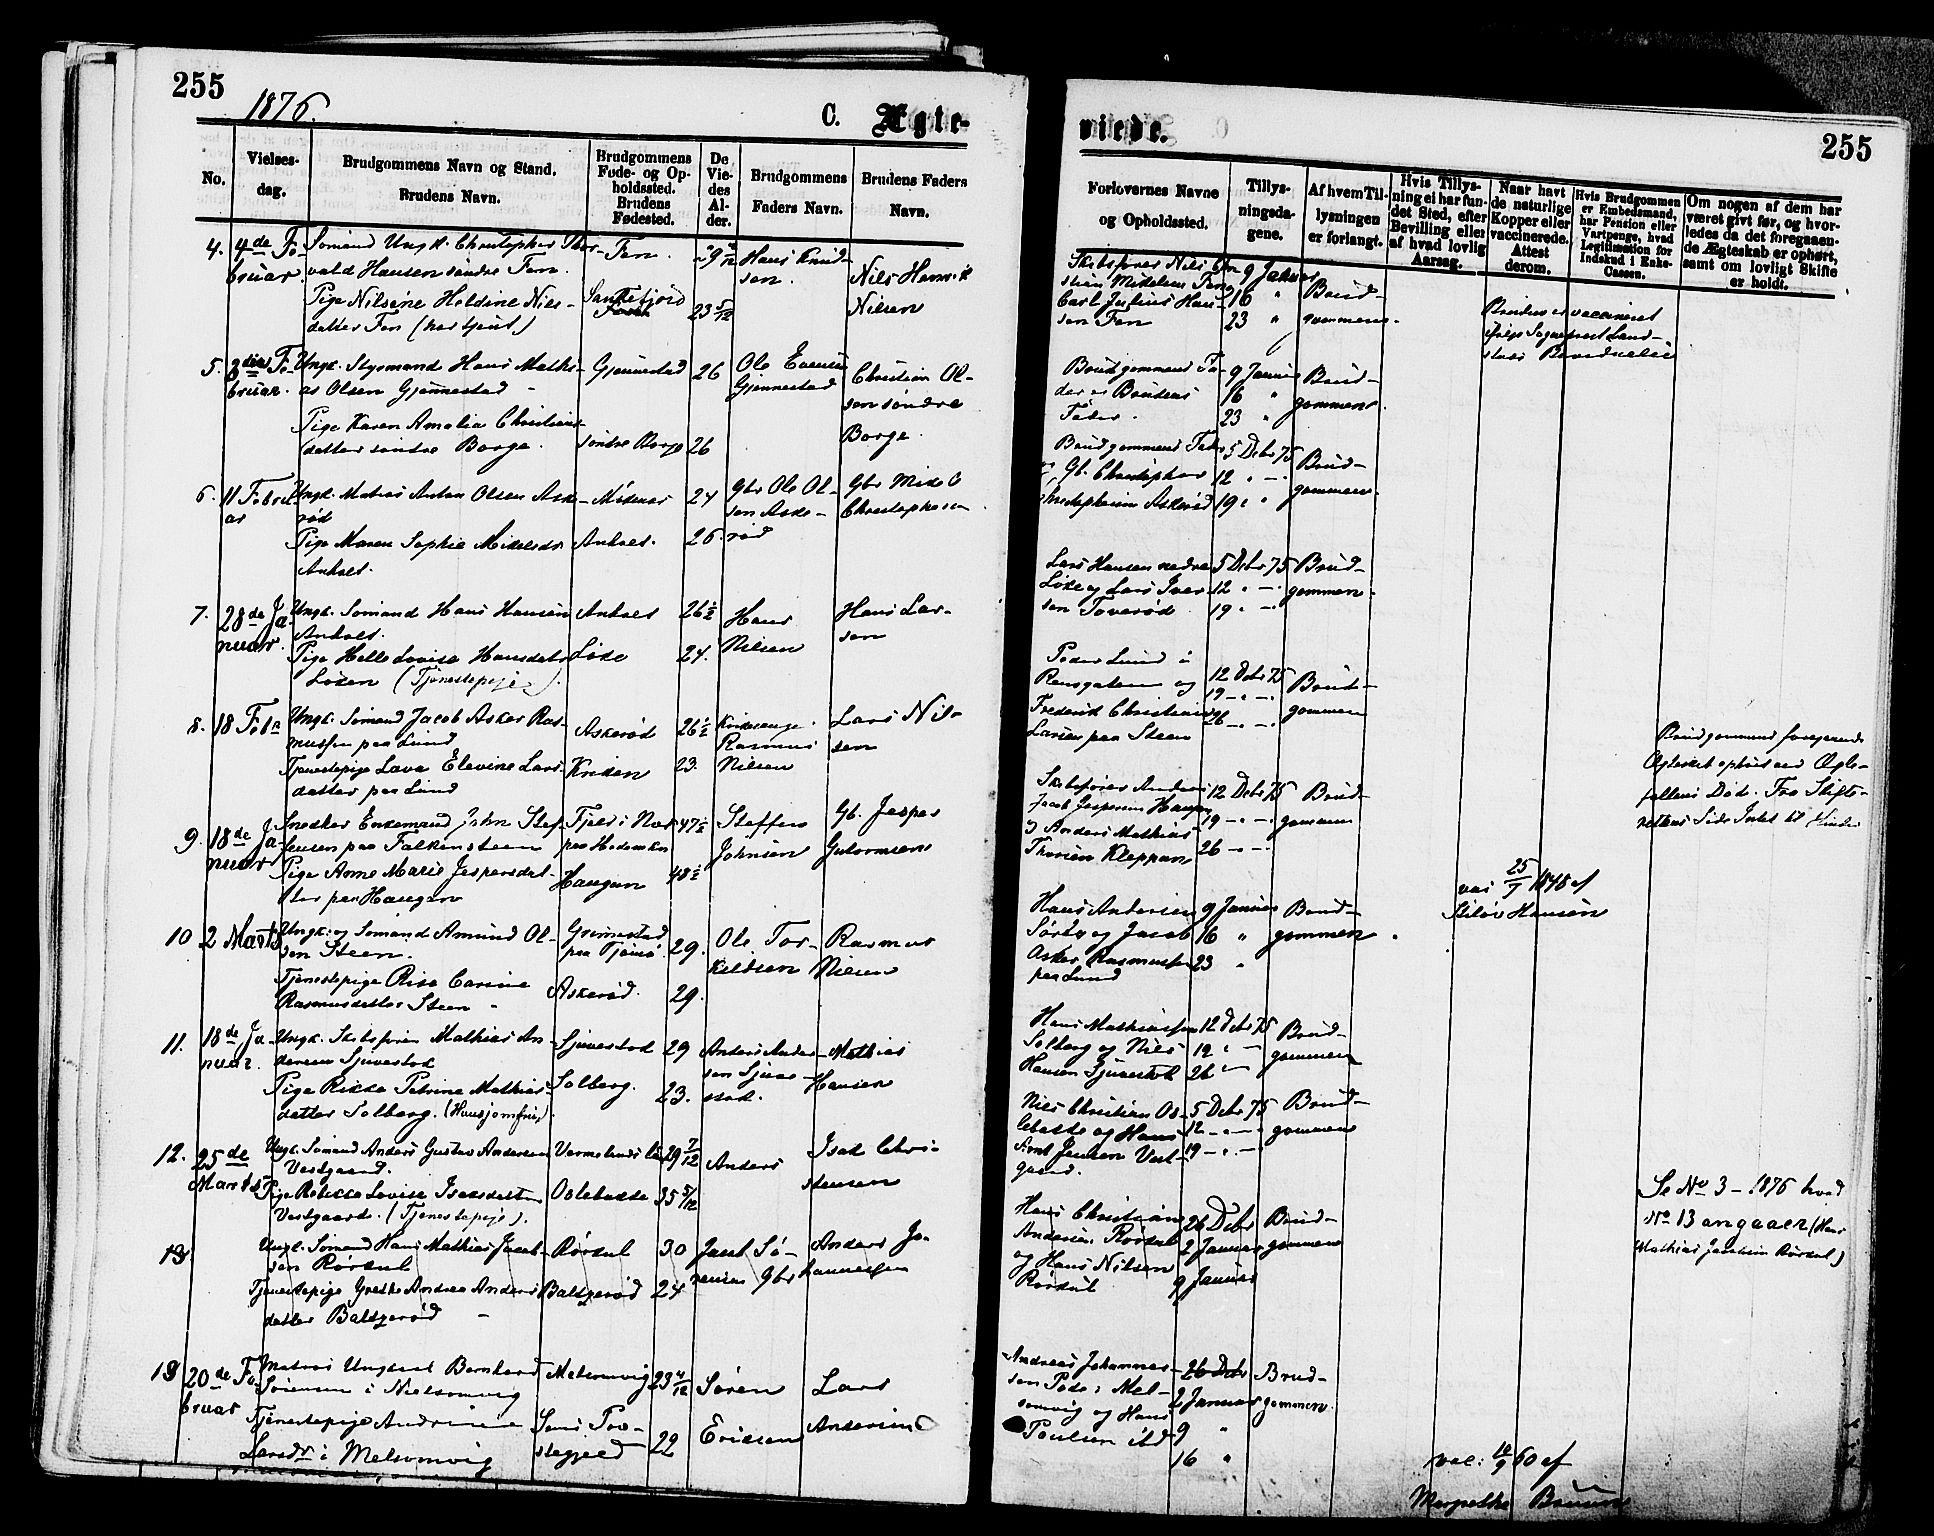 255
1876.
C. Ægte-
viede.
255
No.
Vielses-
dag.
Brudgommens Navn og Stand.
Brudens Navn.
Brudgommens
Føde- og Op-
holdssted.
Brudens
Fødested.
De
Vie-
des
Al-
der.
Brudgommens
Faders Navn.
Brudens Faders
Navn.
Forlovernes Navne
og Opholdssted.
Tillys-
ningsda-
gene.
Af hvem Til-
lysningen
er forlangt.
Hvis Tillys-
ning ei har fun-
det Sted, efter
Bevilling eller
af hvad lovlig
Aarsag.
Naar havt
de naturlige
Kopper eller
vaccinerede.
Attest
derom.
Hvis Brudgommen
er Embedsmand,
har Pension eller
Vartpenge, hvad
Legitimation for
Indskud i Enke-
Cassen.
Om nogen af dem har
været givt før, og hvor-
ledes da det foregaaen-
de Ægteskab er ophørt,
samt om lovligt Skifte
er holdt.
4. 4de Fe-
bruar.
Sømand Ungk. Christopher Thor-
vald Hansen søndre Fen.
Pige Nilsine Heldine Nils-
datter Fen (har tjent)
Fen.
Sandefjord
23 5/12
Hans Knud-
sen.
Nils Henrik
Nilsen
Skibsfører Nils
Carl Julius Han-
sen Fen
9 Januar
16 "
23 "
Brud-
gommens.
Bruden er vaccineret
5. Februar.
Ungk. Styrmand Hans Mathi-
as Olsen Gjennestad
Pige Karen Amalia Christians-
datter søndre Borge.
Gjennestad
søndre Borge
26
26
Ole Evensen
Gjennestad
Christian Ol-
sen søndre
Borge.
Brudgommens Fa-
der og Brudens
Fader.
9 Januar
16 "
23 "
Brud-
gommen.
6. 11 Febru-
ar
Ungk. Matias Anton Olsen Aske-
rød
Pige Maren Sophie Mikelsdr
24
26
Gbr Ole Ol-
sen Aske-
rød
Gbr Mikel
Christophersen
Brudgommens Fader
Gb. Christopher
Christophersen Askerød
5 Debr 75
12 " -
19 " "
Brud-
gommen.
7. 28de Ja-
nuar.
Ungk. Sømand Hans Hansen
Pige Helle Lovise Hansdatr
Løken (Tjenestepige).
26½
24.
Hans
Nilsen
Hans Lar-
sen
Lars Hansen nedre
Løke og Lars Iver-
sen Toverød
5 Debr 75
12 " -
19 " -
Brud-
gommen.
8. 18 Febr
Ungk. Sømand Jacob Asker Ras-
mussen paa Lund
Tjenestepige Lava Elevine Lars-
datter paa Lund
Askerød
26½
23.
Rasmus
Nilsen
Lars Nil-
sen
Peder Lund i
Frederik Christian
Larsen paa Steen
12 Debr 75
19 - " -
26 - " -
Brud-
gommen
9. 18de Ja-
nuar
Snedker Enkemand John Stef-
fensen paa Falkensteen
Pige Anne Marie Jespersdat-
ter paa Haugen
Haugen
47½
48½
Steffen
Johnsen
Gb. Jesper
Gulormsen
Skibsfører Anders
Jacob Jespersen Haugen
og Anders Mathias
Thorsen Kleppan
12 Debr 75
19 - " -
26 - " -
Brud-
gommen
Brudgommens foregaaende
Ægteskab ophørt ved Ægte-
fellens Død.
10 2 Marts
Ungk. og Sømand Amund Ol-
sen Steen.
Tjenestepige Risa Carine
Rasmusdatter Steen
Grimestad
paa Tjømø.
Askerød.
29.
29.
Ole Tor-
kildsen
Rasmus
Nilsen
Hans Andersen
Sørby og Jacob
Asker Rasmussen
paa Lund
9 Januar
16 "
23 "
Brud-
gommen.
vac 25/7 1848 af
Hansen
11. 18de Ja-
nuar.
Ungk. Skibsfører Mathias An-
dersen Sjuestok
Pige Rikka Petrine Mathias-
datter Solberg. (Huusjomfru).
Sjuestok
Solberg.
29
23.
Anders Ander-
sen Sjue-
stok.
Mathias
Hansen
Hans Mathiassen
Solberg og Nils
Hansen Sjuestok
12 Debr 75
19 " -
26 " -
Brud-
gommen
12. 25de
Marts
Ungk. Sømand Anders Gustav Andersen
Vestgaard.
Pige Rebekka Lovise Isaksdatter
Vestgaarde. (Tjenestepige).
Oslebakke
29 7/12
35 5/12
Anders
Isak Chri-
stensen
Nils Christian Os-
lebakke og Hans
Jensen Vest-
gaard.
5 Debr 75
12 - " -
19 - " -
Brud-
gommen
13
Ungk. Sømand Hans Mathias Jacob-
sen Rørkul
Tjenestepige Grethe Andrea Anders-
datter Baltzerød
Rørkul
Baltzerød
30
24
Jacob Sø-
rensen Gbr
Anders Jo-
hannessen
Hans Christian
Andersen Rørkul
og Hans Nilsen
Rørkul
26 Debr
2 Januar
9 Januar
Brud-
gommen
Se No 3 - 1876 hvad
No 13 angaaer (Hans
Mathias Jacobsen Rørkul)
13 20de Fe-
bruar
Matros Ungkarl Bernhard
Sørensen i Melsomvig
Tjenestepige Andrine
Larsdr i Melsomvig
Melsomvig
Sems Præ-
stegjeld
22
Søren
Eriksen
Lars
Andersen
Andreas Johannes-
sen Pode i Mel-
somvig og Hans
Poulsen ibd
26 Debr
2 Januar
9 "
16 "
Brud-
gommen.
vac. 60 af
Margrethe Bruun